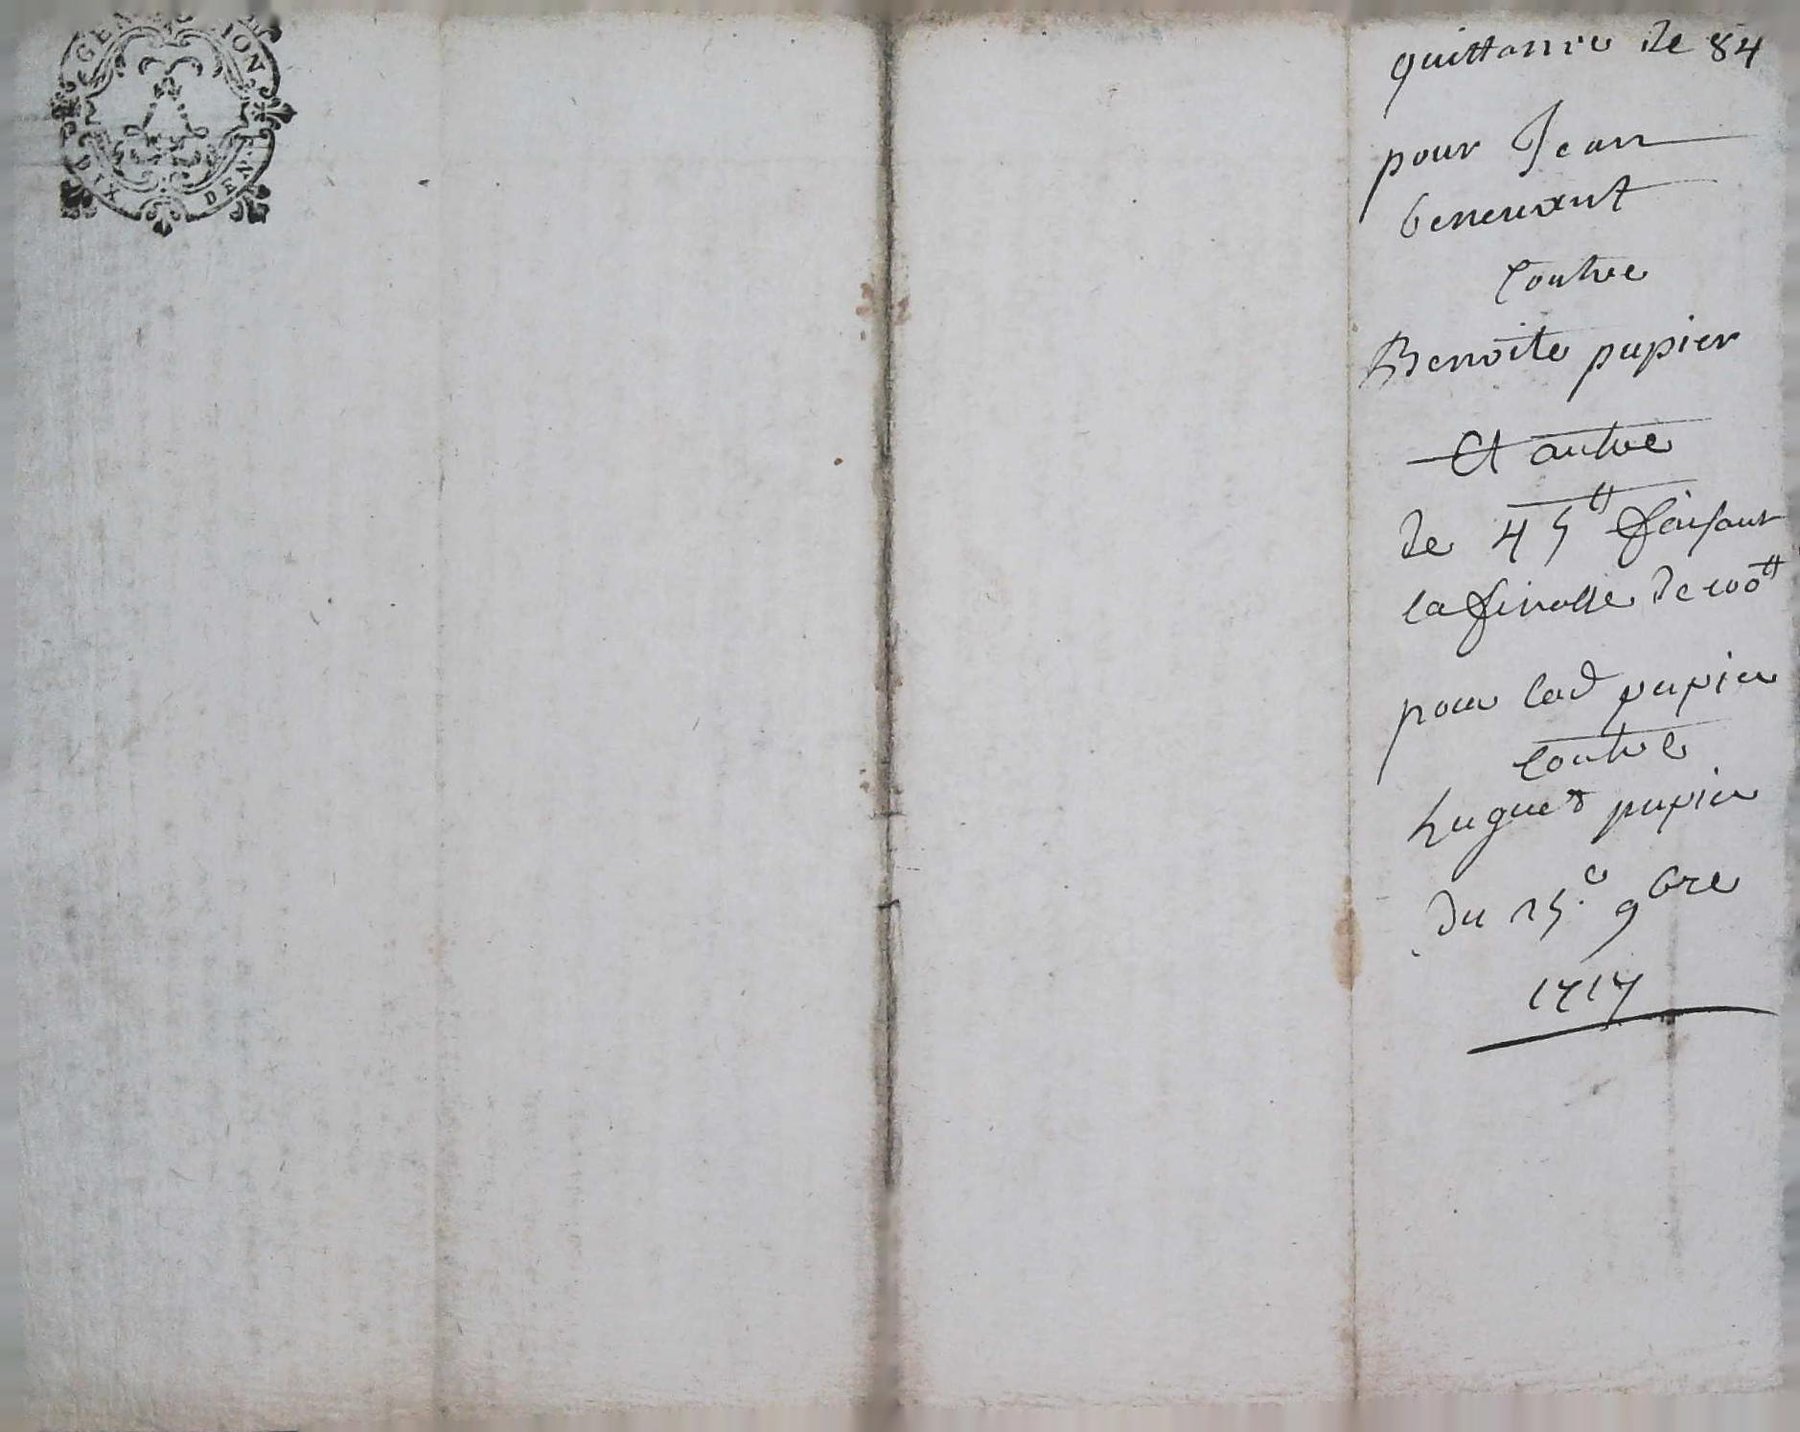 GEN ION
DIX DEN.
quittance de 84
pour Jean
benenaut
Contre
Benoite pupier
Et autre
de 45tt faisant
la finalle de 100tt
pour lad pupier
contre
hugues pupier
du 25.e 9bre
1717